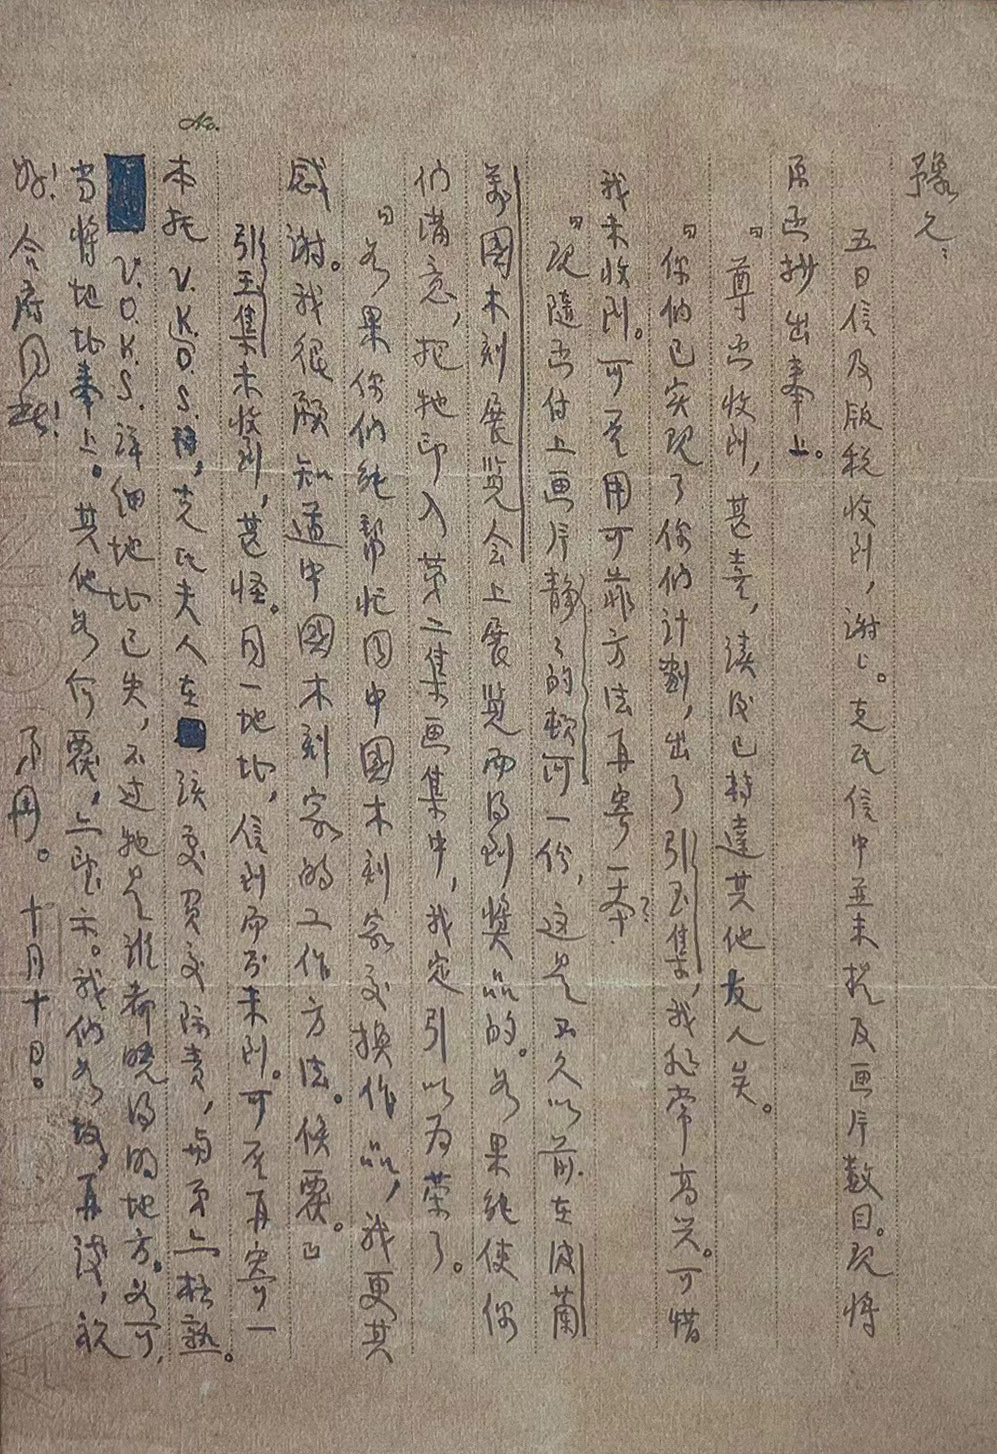 豫兄：
五日信及版税收到，谢之。克氏信中並未提及画片数目。现将
原函抄出奉上。
『尊函收到，甚喜，读后已转达其他友人矣。
『你们已实现了你们计劃，出了引玉集，我非常高兴。可惜
我未收到。可否用可靠方法再寄一本？
『现随函付上画片静之的顿河一份，这是不久以前在波蘭
萬國木刻展览会上展览而得到獎品的。如果能使你
们满意，把牠印入第二集画集中，我定引以为荣了。
『如果你们能帮忙同中國木刻家交换作品，我更其
感谢。我很願知道中國木刻家的工作方法。候覆。』
引玉集未收到，甚怪。同一地址，信到而书未到。可否再寄一
本托 V.K.O.S. 转，克氏夫人在 该处買交际责，与弟亦极熟。
V.O.K.S. 详细地址已失，不过牠是谁都晓得的地方。如可，
当将地址奉上。其他如何覆，亦望示。我们如故，再谈，祝
好！合府同此！
弟丹。十月十日。
No.